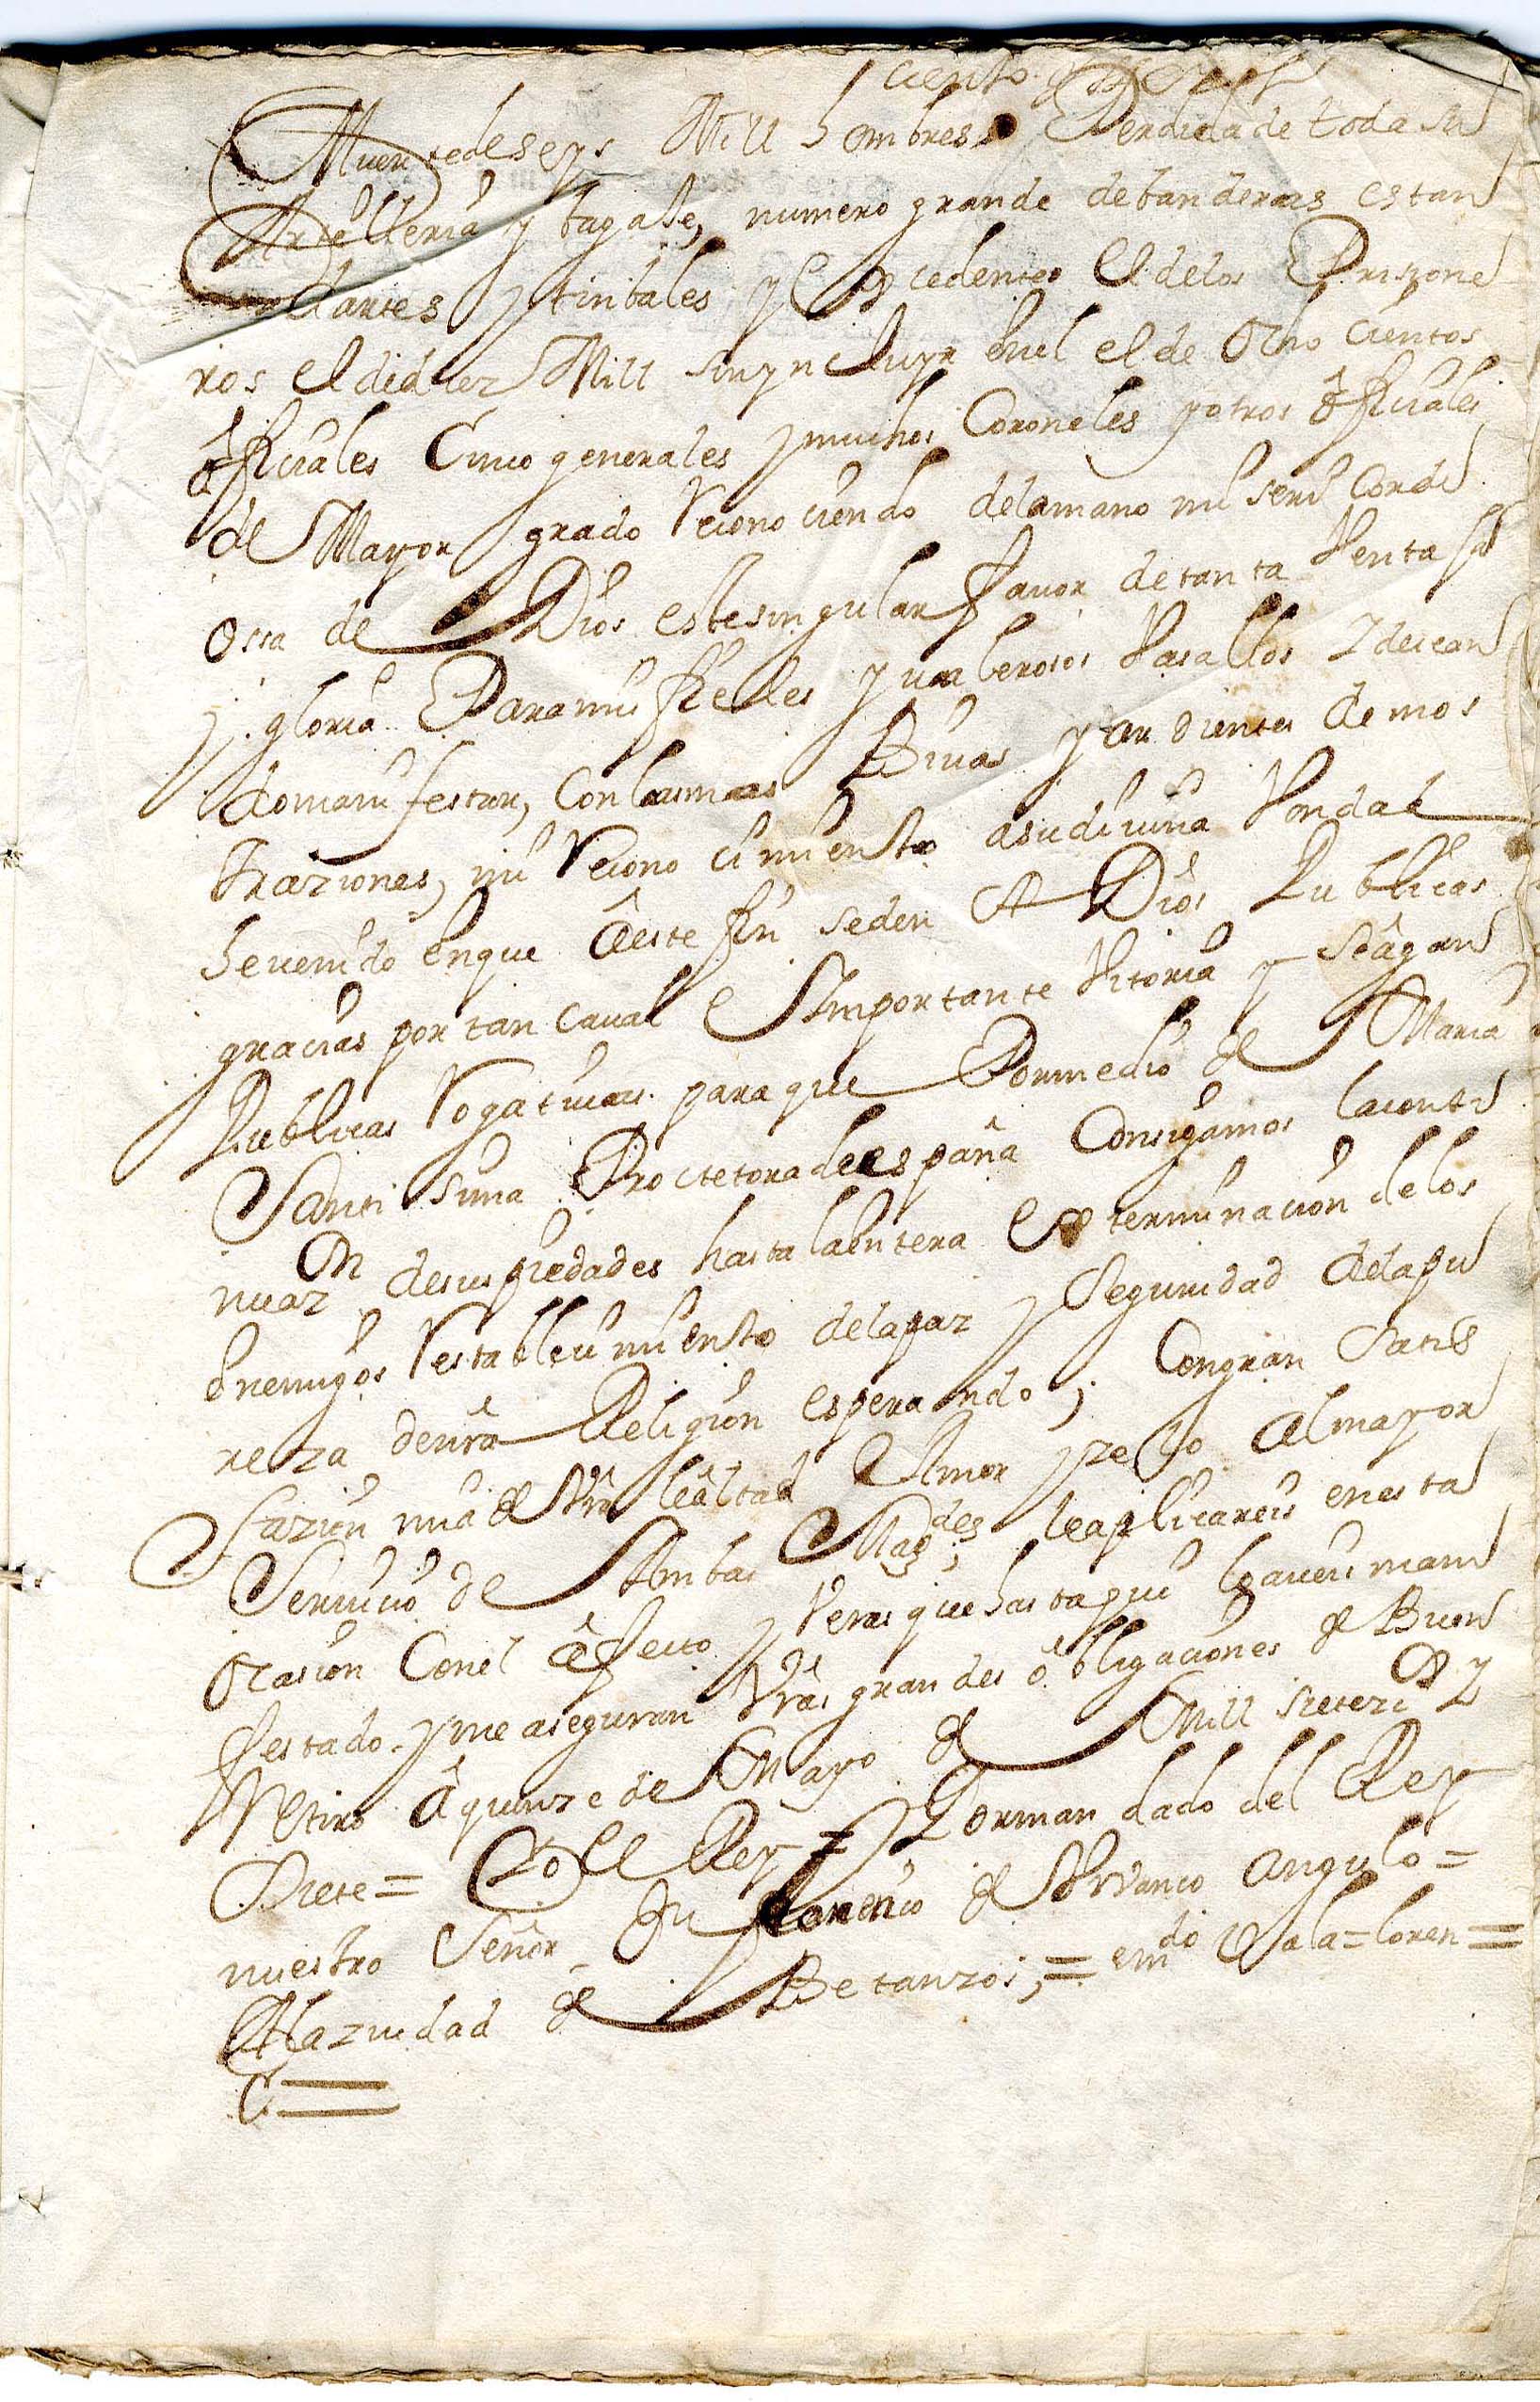 ciento y
Muertedeseys Mill hombres Perdida de toda su
Artelleria y bagaſe, numero grande debanderas estan
dartes y tinbales y excedentes El delos Priszone
ros el dediez Mill sinyncluyr enel el de Ocho cientos
ôfficiales Cinco generales y muchos Coroneles y otros ôfficiales
de Mayor grado Reconociendo delamano miseri Cordi
ossa de Dios estesingular fauor de tanta Ventaſa
y gloria Para mis fieles y valerosos Vasallos Y desean
do manifestar, Con las mas Biuas y ardientes demos
traziones, mi Reconocimiento asudiuina Vondad
he uenido enque âeste fin seden A Dios Publicas
gracias por tan caual e Importante Vitoria y se âgan
Publicas Rogatiuas para que Por medio de Maria
Santisima Proctetora de españa Consigamos la conti
nuaz.on desus piedades hasta la entera Exterminacion de los
Enemigos Restablecimiento de la paz y Seguridad de la pu
reza de nrâ Religion esperando, Con gran Satis
fazion mia de Vrâ leâltad Amor y zelo al mayor
Seruicio de Ambas Mag.des, le aplicareis en esta
ôcasion Con el âfecto y Veras que hasta qui lo aueis mani
festado y me aseguran Vrâs grandes ôbligaciones de Buen
Retiro â quinze de Mayo de Mill setezi.os Y
Siete = Yo El Rey = Por mandado del Rey
nuestro Señor Lorenzo de Vivanco Angulo =
A la ziudad de Betanzos, = em.do = ala = loren =
C =